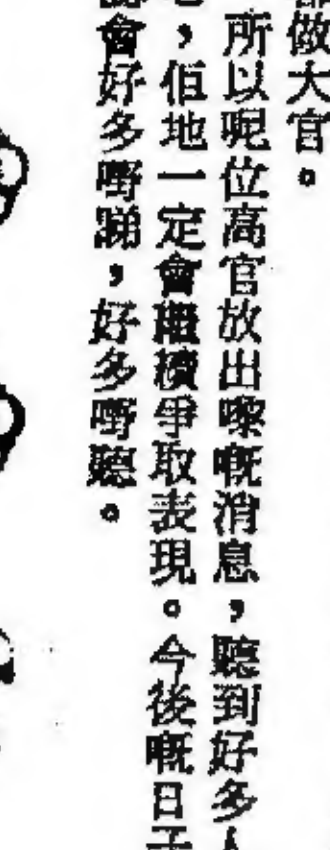 做大官。
所以呢位高官放出嚟嘅消息，聽到好多
，佢地一定會繼續爭取表現。今後嘅日子
會好多嘢睇，好多嘢聽。